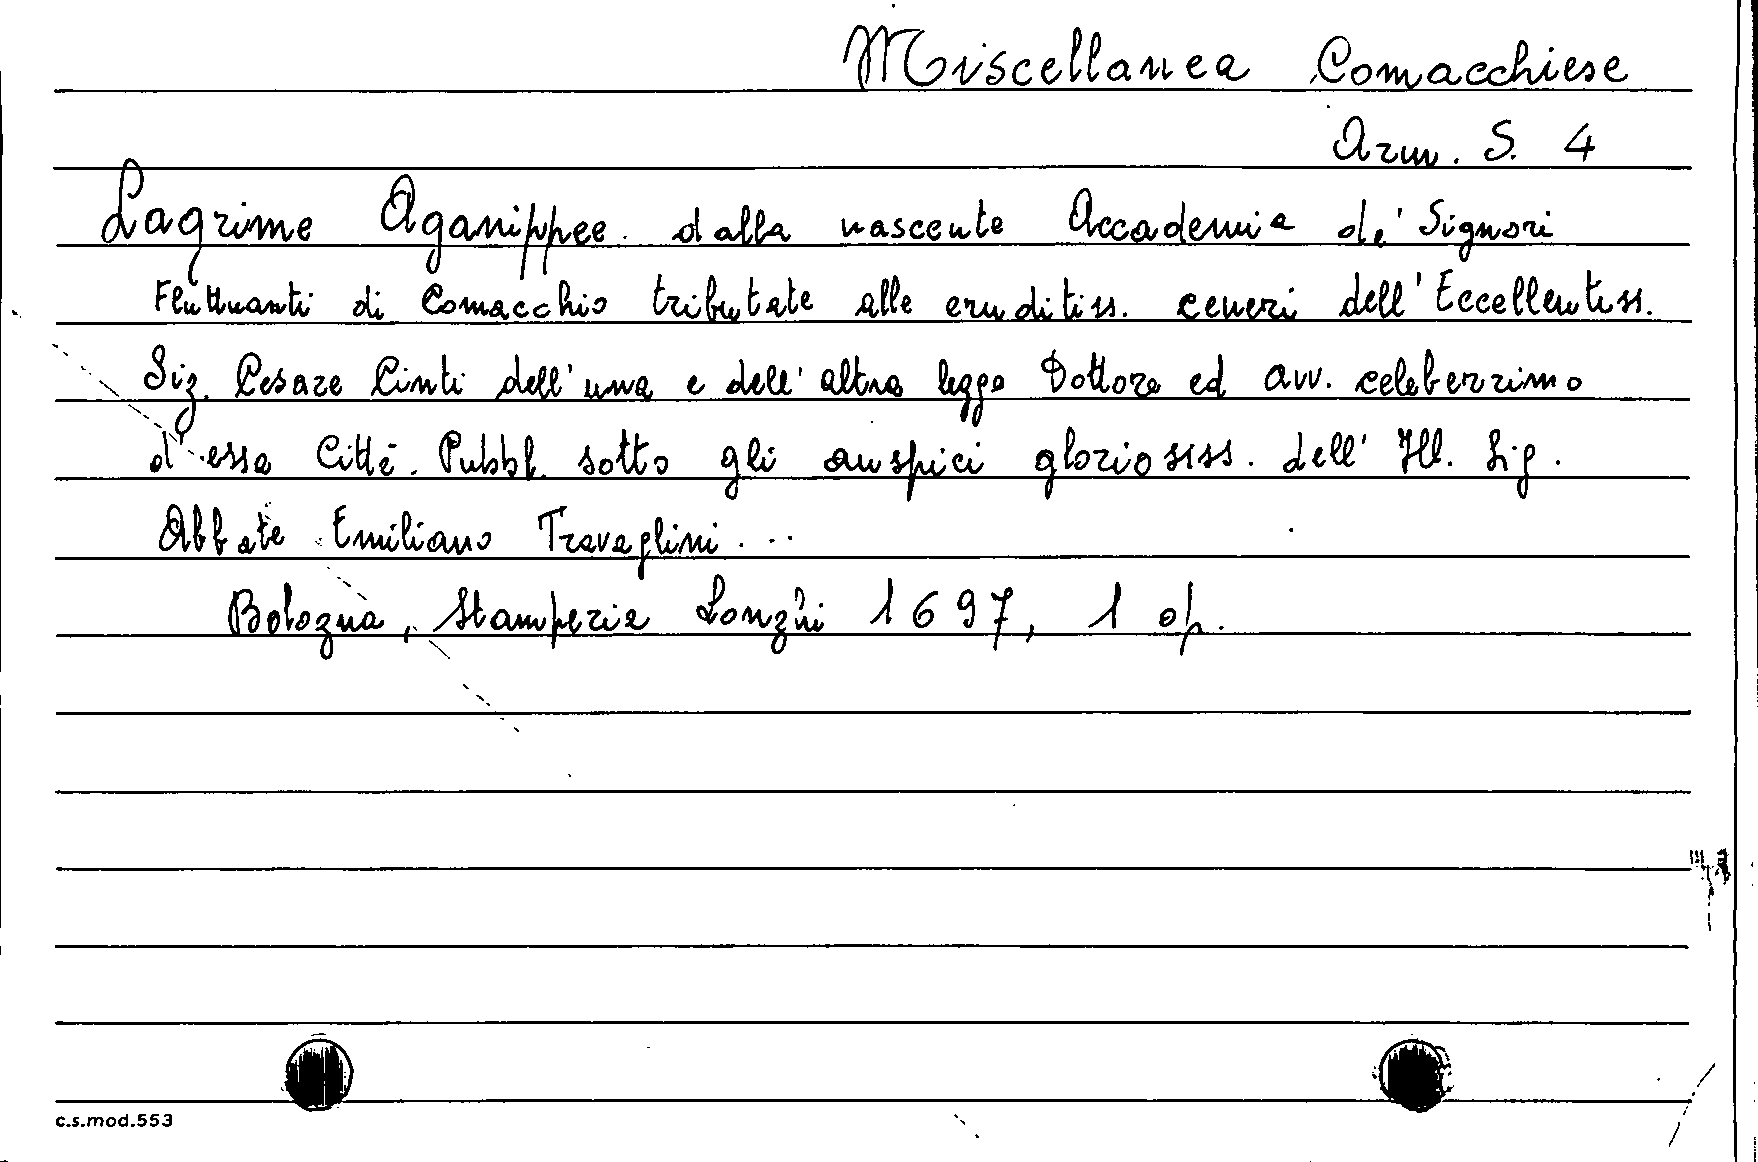 Miscellanea Comacchiese
Arm. S. 4
Lagrime Aganippee dalla nascente Accademia de' Signori
Fluttuanti di Comacchio tributate alle eruditiss. ceneri dell'Eccellentiss.
Sig. Cesare Cinti dell'una e dell'altra legge Dottore ed avv. celeberrimo
d'essa Città. Pubbl. sotto gli auspici gloriosiss. dell' Ill. Sig.
Abbate Emiliano Travaglini...
Bologna, Stamperia Longhi 1697, 1 op.
c.s.mod.553